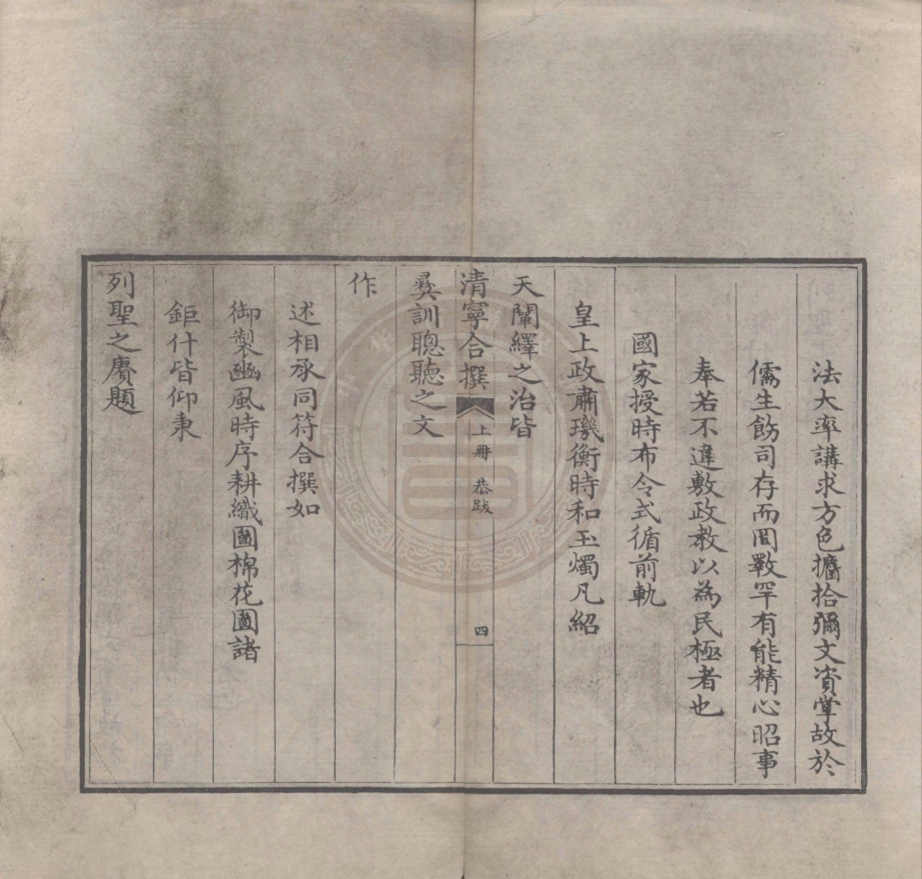 法大率講求方色攟拾彌文資掌故於
儒生飭司存而罔斁罕有能精心昭事
奉若不違敷政教以為民極者也
國家授時布令式循前軌
皇上政肅璣衡時和玉燭凡紹
天闡繹之治皆
清寧合撰
上冊 恭跋
四
彝訓聰聽之文
作
述相承同符合撰如
御製豳風時序耕織圖棉花圖諸
鉅什皆仰秉
列聖之賡題